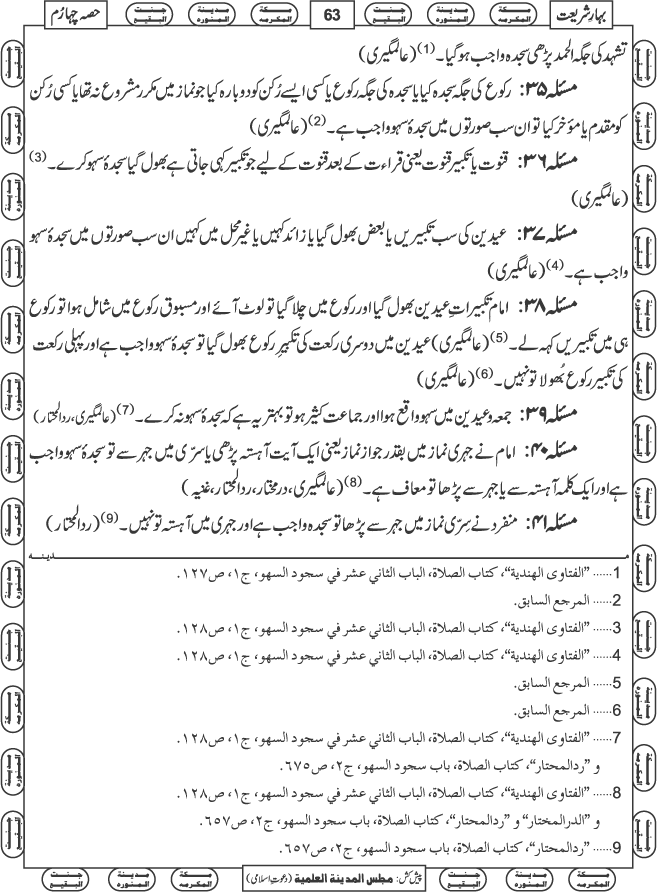 بہارِ شریعت
63
حصہ چہارم
تشہد کی جگہ الحمد پڑھی سجدہ واجب ہوگیا۔ (1) (عالمگیری)
مسئلہ ۳۵: رکوع کی جگہ سجدہ کیا یا سجدہ کی جگہ رکوع یا کسی ایسے رُکن کو دوبارہ کیا جو نماز میں مکرر مشروع نہ تھا یا کسی رُکن
کو مقدم یا مؤخر کیا تو ان سب صورتوں میں سجدۂ سہو واجب ہے۔ (2) (عالمگیری)
مسئلہ ۳۶: قنوت یا تکبیر قنوت یعنی قراءت کے بعد قنوت کے لیے جو تکبیر کہی جاتی ہے بھول گیا سجدۂ سہو کرے۔ (3)
(عالمگیری)
مسئلہ ۳۷: عیدین کی سب تکبیریں یا بعض بھول گیا یا زائد کہیں یا غیر محل میں کہیں ان سب صورتوں میں سجدۂ سہو
واجب ہے۔ (4) (عالمگیری)
مسئلہ ۳۸: امام تکبیراتِ عیدین بھول گیا اور رکوع میں چلا گیا تو لوٹ آئے اور مسبوق رکوع میں شامل ہوا تو رکوع
ہی میں تکبیریں کہہ لے۔ (5) (عالمگیری) عیدین میں دوسری رکعت کی تکبیرِ رکوع بھول گیا تو سجدۂ سہو واجب ہے اور پہلی رکعت
کی تکبیر رکوع بُھولا تو نہیں۔ (6) (عالمگیری)
مسئلہ ۳۹: جمعہ و عیدین میں سہو واقع ہوا اور جماعت کثیر ہو تو بہتر یہ ہے کہ سجدۂ سہو نہ کرے۔ (7) (عالمگیری، ردالمحتار)
مسئلہ ۴۰: امام نے جہری نماز میں بقدر جواز نماز یعنی ایک آیت آہستہ پڑھی یا سرّی میں جہر سے تو سجدۂ سہو واجب
ہے اور ایک کلمہ آہستہ سے یا جہر سے پڑھا تو معاف ہے۔ (8) (عالمگیری، درمختار، ردالمحتار، غنیہ)
مسئلہ ۴۱: منفرد نے سِرّی نماز میں جہر سے پڑھا تو سجدہ واجب ہے اور جہری میں آہستہ تو نہیں۔ (9) (ردالمحتار)
مدینہ
1...... "الفتاوی الهندیة"، کتاب الصلاة، الباب الثاني عشر في سجود السهو، ج۱، ص۱۲۷.
2...... المرجع السابق.
3...... "الفتاوی الهندیة"، کتاب الصلاة، الباب الثاني عشر في سجود السهو، ج۱، ص۱۲۸.
4...... "الفتاوی الهندیة"، کتاب الصلاة، الباب الثاني عشر في سجود السهو، ج۱، ص۱۲۸.
5...... المرجع السابق.
6...... المرجع السابق.
7...... "الفتاوی الهندیة"، کتاب الصلاة، الباب الثاني عشر في سجود السهو، ج۱، ص۱۲۸.
و "ردالمحتار"، کتاب الصلاة، باب سجود السهو، ج۲، ص۶۷۵.
8...... "الفتاوی الهندیة"، کتاب الصلاة، الباب الثاني عشر في سجود السهو، ج۱، ص۱۲۸.
و "الدرالمختار" و "ردالمحتار"، کتاب الصلاة، باب سجود السهو، ج۲، ص۶۵۷.
9...... "ردالمحتار"، کتاب الصلاة، باب سجود السهو، ج۲، ص۶۵۷.
پیش کش: مجلس المدینة العلمیة (دعوت اسلامی)